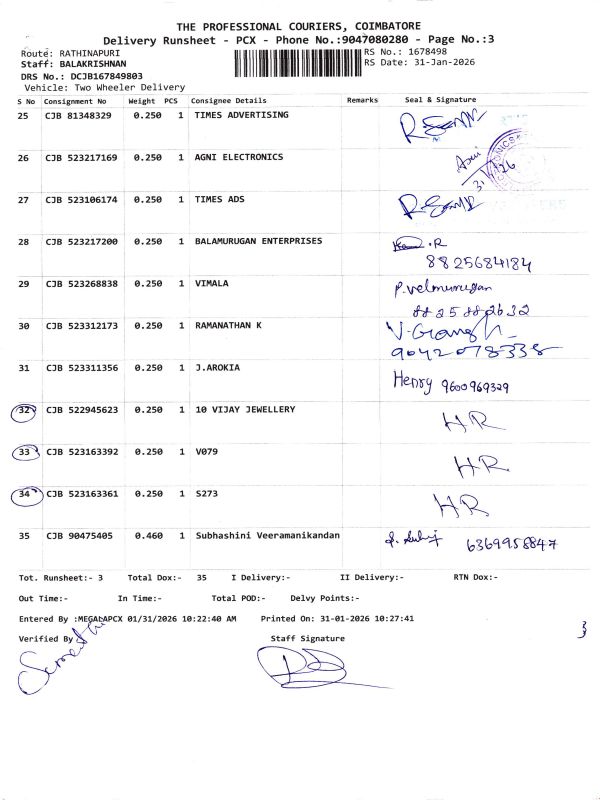 THE PROFESSIONAL COURIERS, COIMBATORE
Delivery Runsheet - PCX - Phone No.:9047080280 - Page No.:3
Route: RATHINAPURI RS No.: 1678498
Staff: BALAKRISHNAN RS Date: 31-Jan-2026
DRS No.: DCJB167849803
Vehicle: Two Wheeler Delivery
S No Consignment No Weight PCS Consignee Details Remarks Seal & Signature
25 CJB 81348329 0.250 1 TIMES ADVERTISING
26 CJB 523217169 0.250 1 AGNI ELECTRONICS
27 CJB 523106174 0.250 1 TIMES ADS
28 CJB 523217200 0.250 1 BALAMURUGAN ENTERPRISES .R
8825684184
29 CJB 523268838 0.250 1 VIMALA P.velmurugan
8825882632
30 CJB 523312173 0.250 1 RAMANATHAN K
9042078338
31 CJB 523311356 0.250 1 J.AROKIA Henry 9600969329
32 CJB 522945623 0.250 1 10 VIJAY JEWELLERY HR
33 CJB 523163392 0.250 1 V079 HR
34 CJB 523163361 0.250 1 S273 HR
35 CJB 90475405 0.460 1 Subhashini Veeramanikandan 6369958847
Tot. Runsheet:- 3 Total Dox:- 35 I Delivery:- II Delivery:- RTN Dox:-
Out Time:- In Time:- Total POD:- Delvy Points:-
Entered By :MEGALAPCX 01/31/2026 10:22:40 AM Printed On: 31-01-2026 10:27:41
Verified By Staff Signature